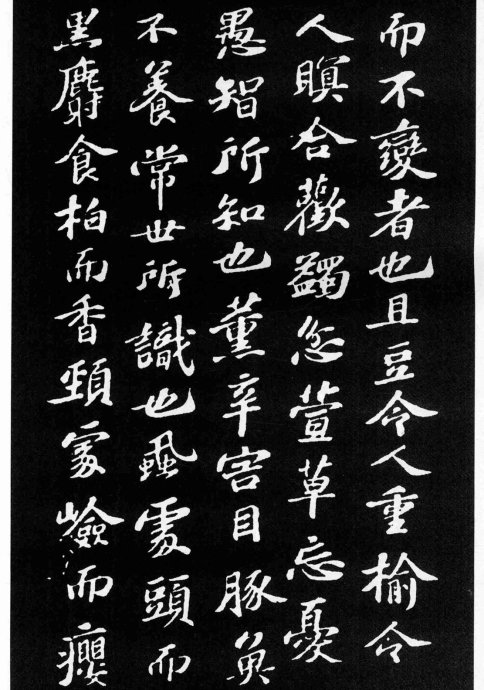 而不變者也且豆令人重榆令
人瞑合歡蠲忿萱草忘憂
愚智所知也薰辛害目豚魚
不養常世所識也虱處頭而
黑麝食柏而香頸處嶮而癭